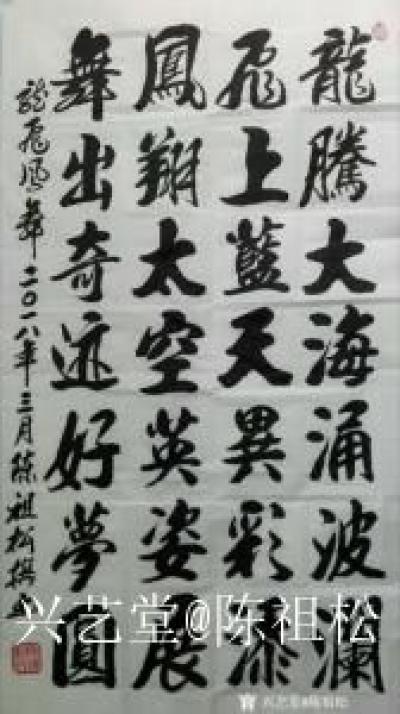 龍騰大海涌波瀾
飛上藍天異彩添
鳳翔太空英姿展
舞出奇迹好夢圓
龍飛鳳舞二〇一八年三月陳祖松撰
兴艺堂@陈祖松
兴艺堂@陈祖松